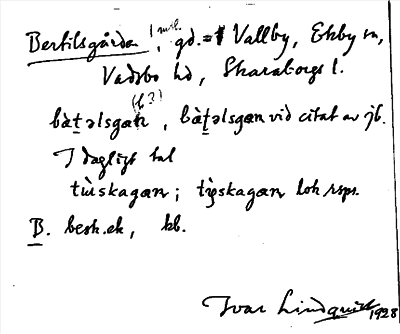 Bertilsgården, gd. i Vallby, Ekby sn,
Vadsbo hd, Skaraborgs l.
bàt̲əlsgan, bàt̲əlsgən vid citat av jb.
I dagligt tal
tùskagan; tỳskagan och
B. besk. ek, kb.
Ivar Lindquist 1928